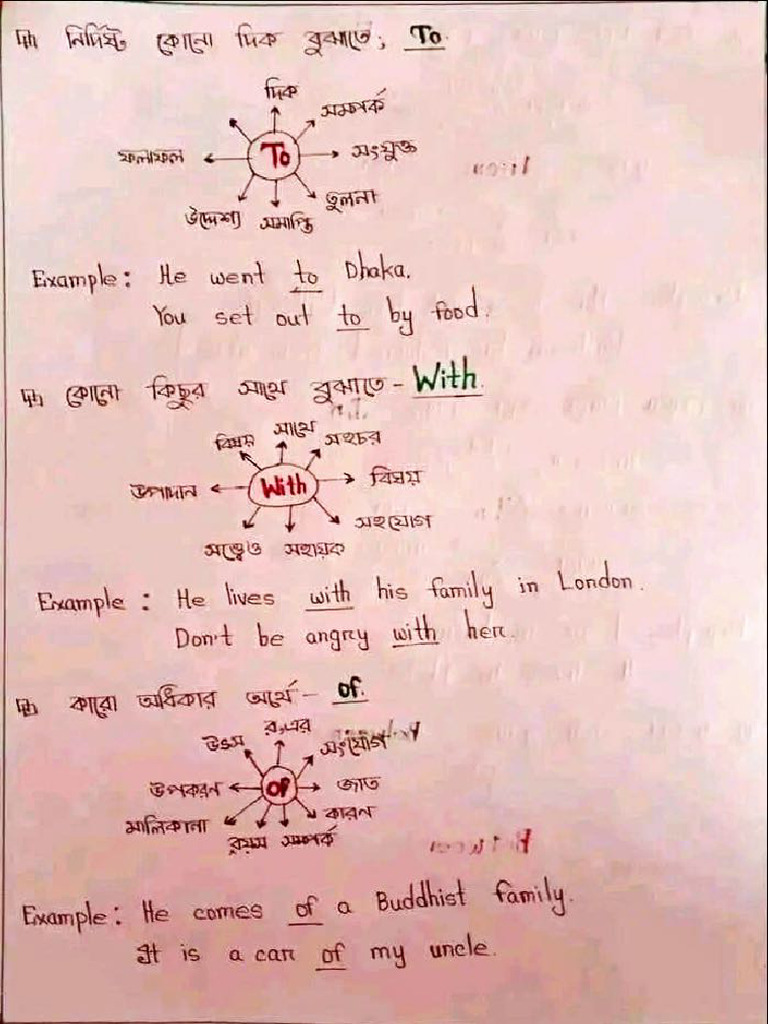 নির্দিষ্ট কোনো দিক বুঝাতে; To.
দিক
সম্পর্ক
ফলাফল
To
সংযুক্ত
তুলনা
উদ্দেশ্য
সমাপ্তি
Example: He went to Dhaka.
You set out to by food.
কোনো কিছুর সাথে বুঝাতে - With.
বিষয়
সাথে
সহচর
উপাদান
With
বিষয়
সহযোগ
সত্ত্বেও
সহায়ক
Example: He lives with his family in London.
Don't be angry with her.
কারো অধিকার অর্থে - of.
উৎস
র,এর
সংযোগ
উপকরণ
of
জাত
মালিকানা
কারণ
সম্পর্ক
Example: He comes of a Buddhist family.
It is a car of my uncle.